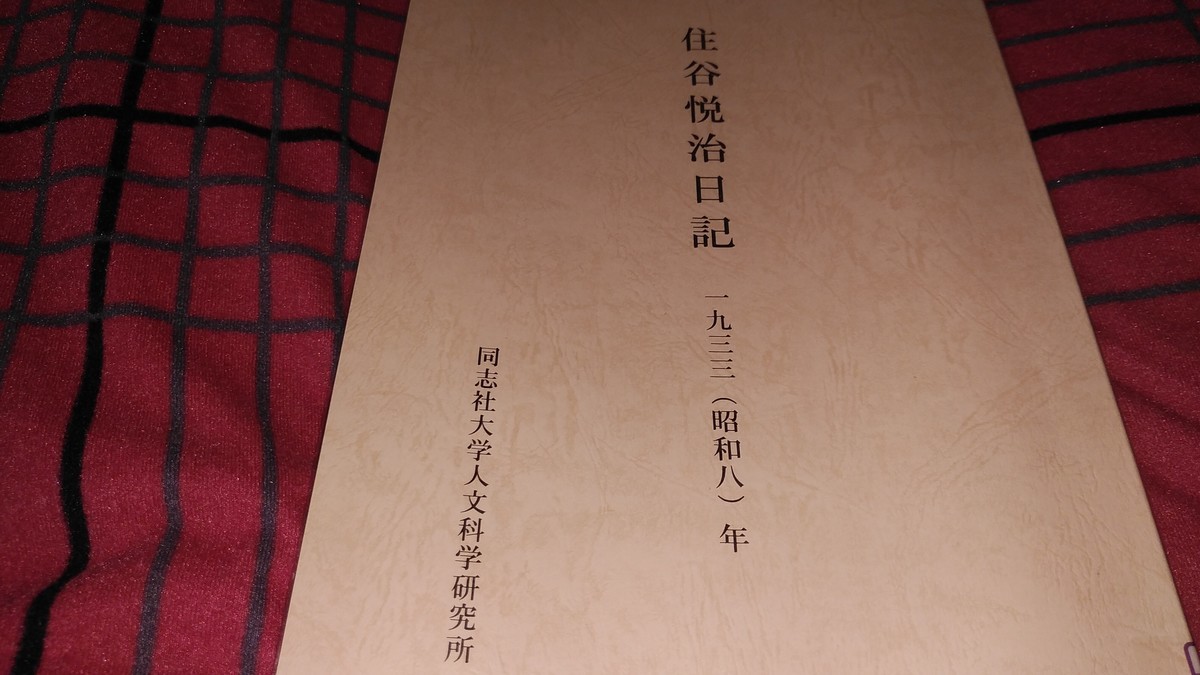 住谷悦治日記 一九三三(昭和八)年
同志社大学人文科学研究所